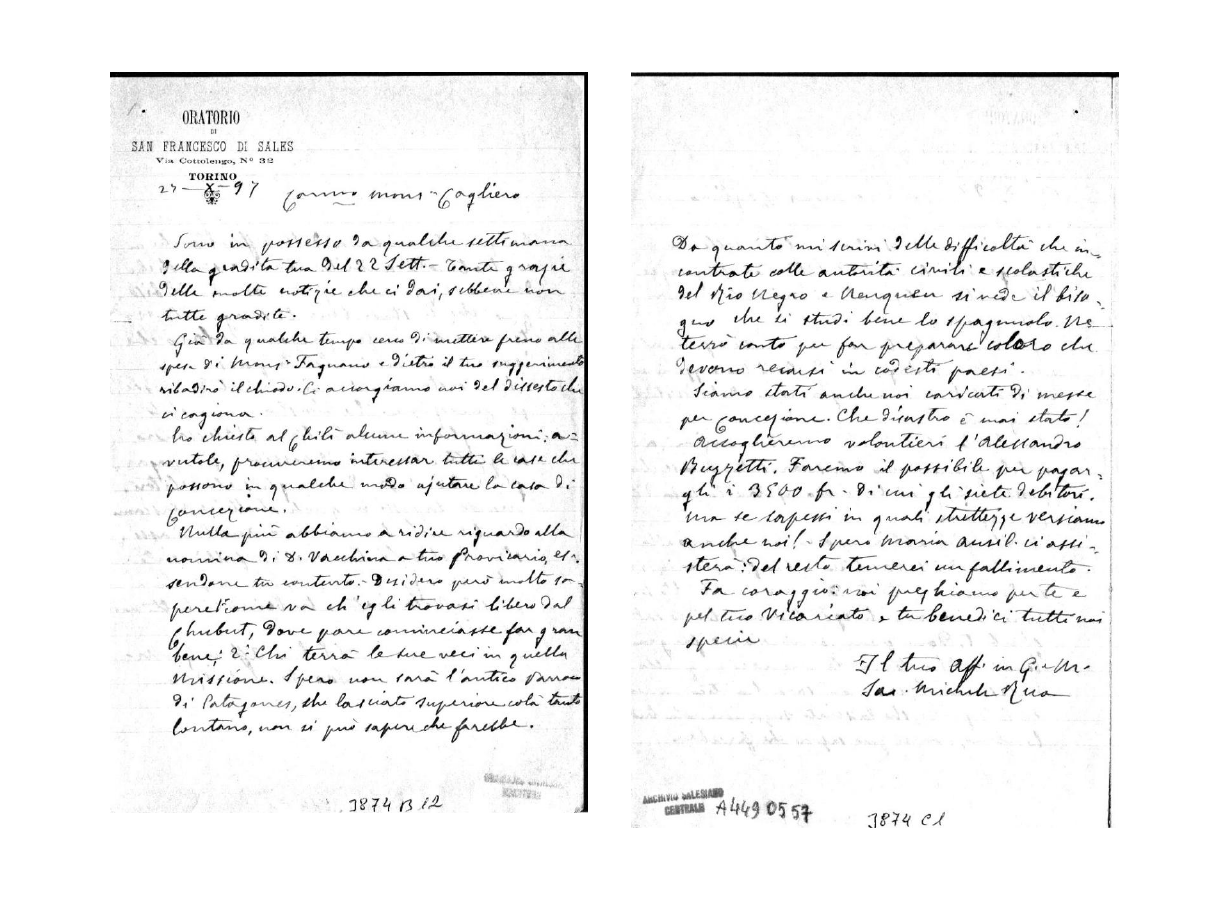 ORATORIO
DI
SAN FRANCESCO DI SALES
Via Cottolengo, Nº 32
TORINO
27-X-97 Car.mo Mons. Cagliero
Sono in possesso da qualche settimana
della gradita tua del 22 Sett. - Tante grazie
delle molte notizie che ci dai, sebbene non
tutte gradite.
Già da qualche tempo cerco di mettere freno alle
spese di Mons. Fagnano e dietro il tuo suggerimento
ribadirò il chiodo. Ci accorgiamo noi del dissesto che
ci cagiona.
Ho chieste al Chilì alcune informazioni: a-
vutele, procureremo interessar tutte le case che
possono in qualche modo ajutare la casa di
Concezione.
Nulla più abbiamo a ridire riguardo alla
nomina di D. Vacchina a tuo Provicario, es-
sendone tu contento. Desidero però molto sa-
pere 1º come va ch'egli trovasi libero dal
Chubut, dove pare cominciasse far gran
bene; 2º Chi terrà le sue veci in quella
Missione. Spero non sarà l'antico Parroco
di Patagones, che lasciato superiore colà tanto
lontano, non si può sapere che farebbe.
3874 B 12
Da quanto mi scrivi delle difficoltà che in-
contrate colle autorità civili e scolastiche
del Rio Negro e Neuquen si vede il biso-
gno che si studi bene lo spagnuolo. Ne
terrò conto per far preparare coloro che
devono recarsi in codesti paesi.
Siamo stati anche noi caricati di messe
per Concezione. Che disastro è mai stato!
Accoglieremo volontieri l'Alessandro
Buzzetti. Faremo il possibile per pagar-
gli i 3500 fr. di cui gli siete debitori.
Ma se sapessi in quali strettezze versiamo
anche noi! - Spero Maria Ausil. ci assi-
sterà: del resto temerei un fallimento.
Fa coraggio: noi preghiamo per te e
pel tuo Vicariato e tu benedici tutti noi
specie
Il tuo Aff. in G. e M.
Sac. Michele Rua
ARCHIVIO SALESIANO
CENTRALE A4490557
3874 C1